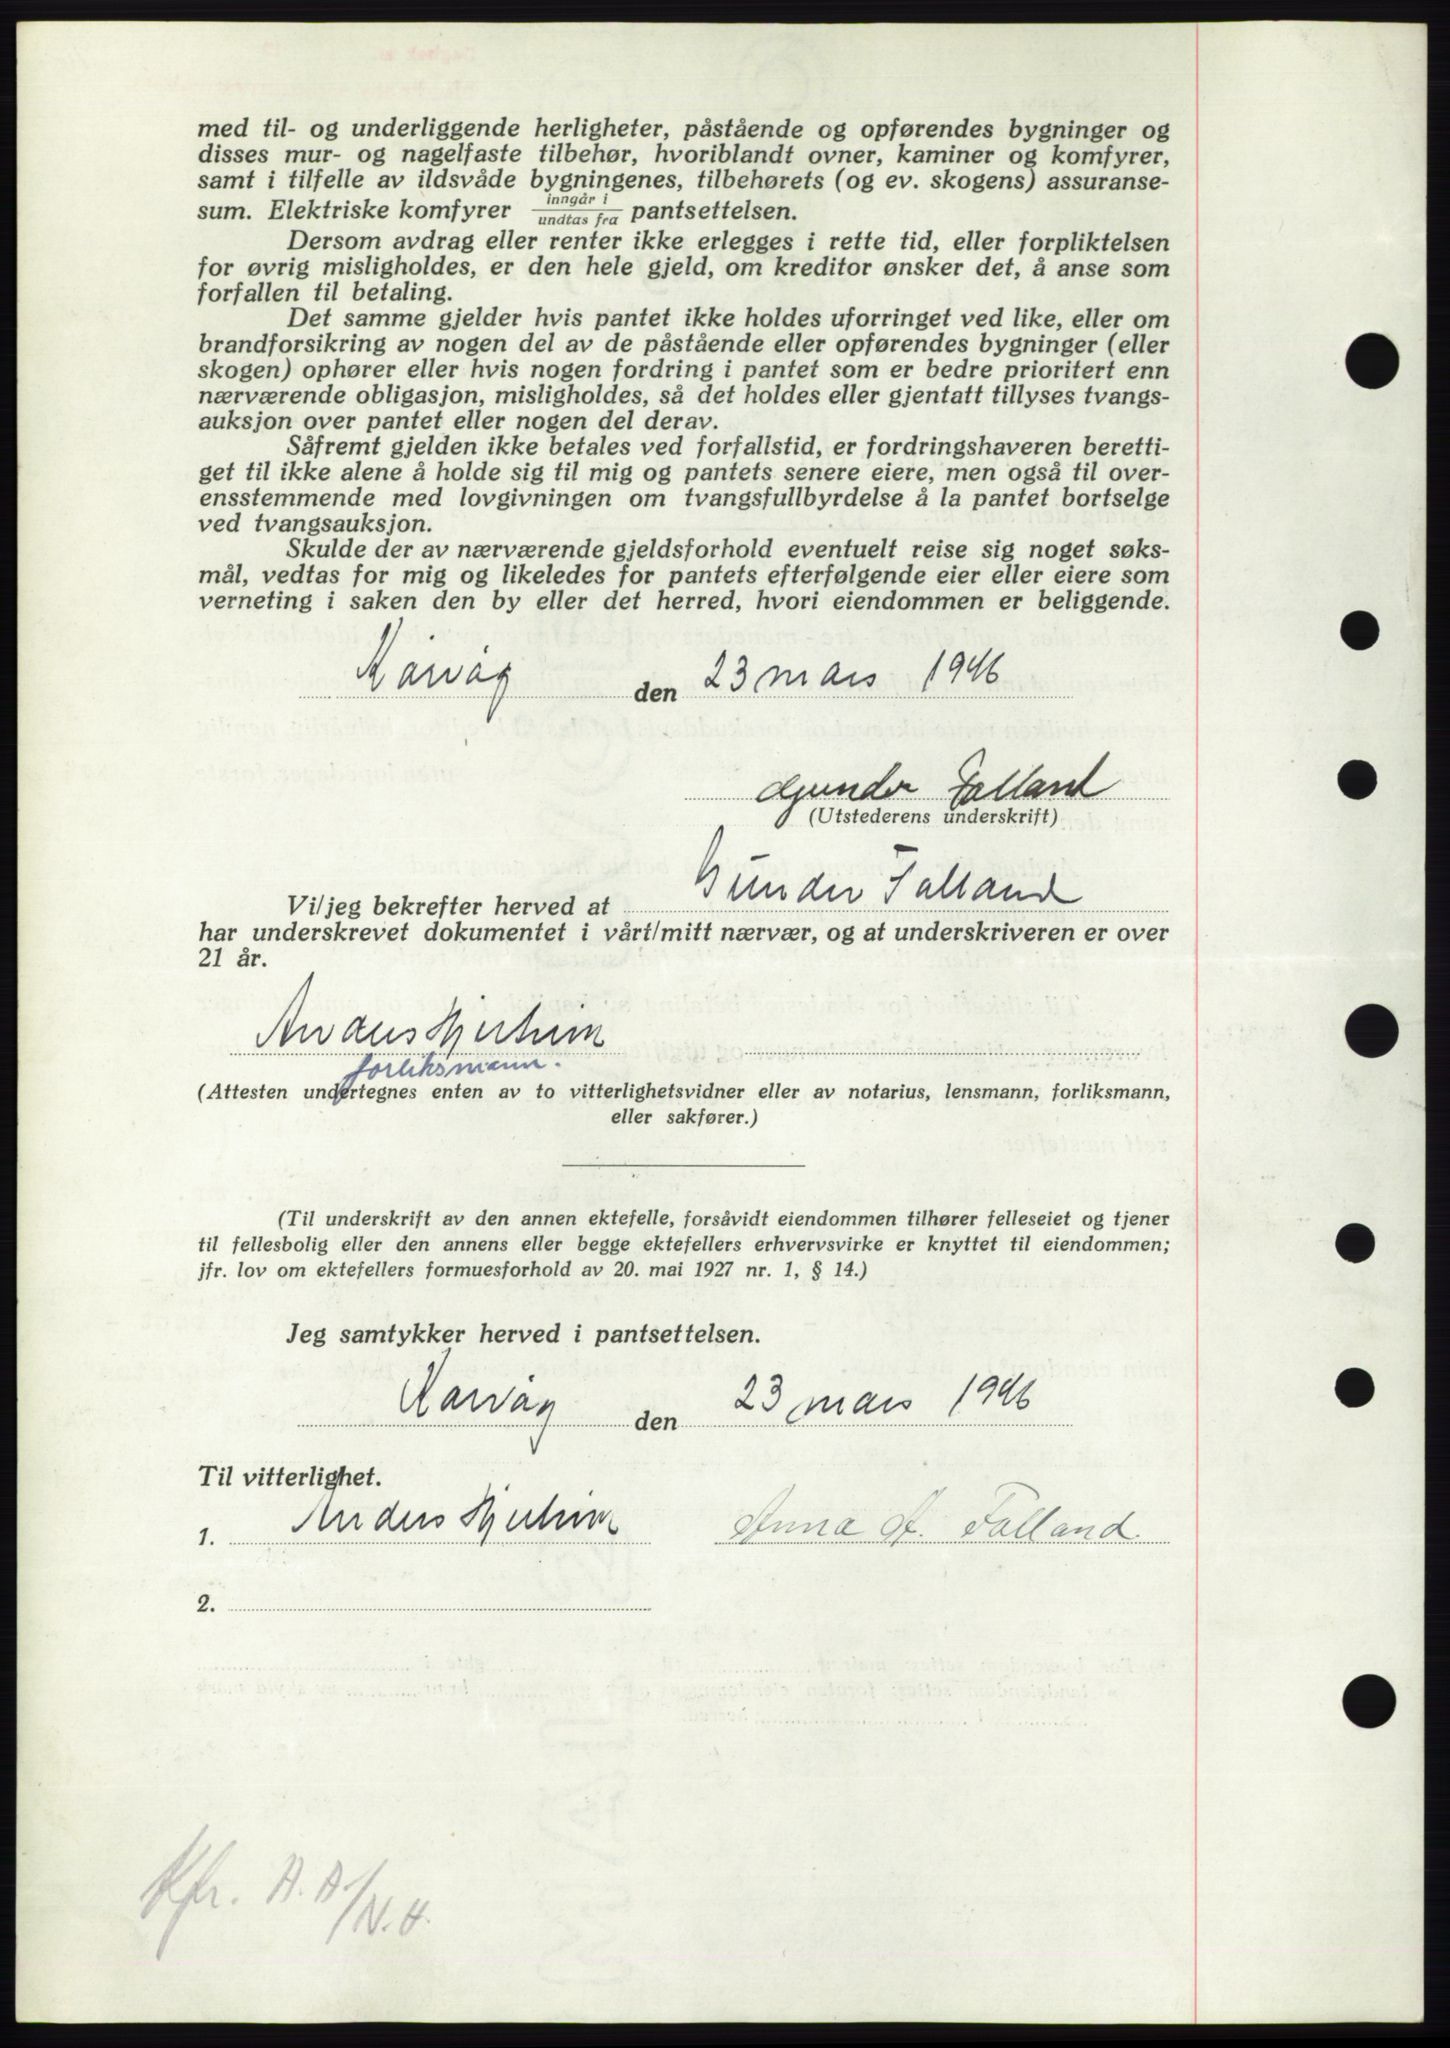 med til- og underliggende herligheter, påstående og opførendes bygninger og
disses mur- og nagelfaste tilbehør, hvoriblandt ovner, kaminer og komfyrer,
samt i tilfelle av ildsvåde bygningenes, tilbehørets (og ev. skogens) assuranse-
sum. Elektriske komfyrer inngår i / undtas fra pantsettelsen.
Dersom avdrag eller renter ikke erlegges i rette tid, eller forpliktelsen
for øvrig misligholdes, er den hele gjeld, om kreditor ønsker det, å anse som
forfallen til betaling.
Det samme gjelder hvis pantet ikke holdes uforringet ved like, eller om
brandforsikring av nogen del av de påstående eller opførendes bygninger (eller
skogen) ophører eller hvis nogen fordring i pantet som er bedre prioritert enn
nærværende obligasjon, misligholdes, så det holdes eller gjentatt tillyses tvangs-
auksjon over pantet eller nogen del derav.
Såfremt gjelden ikke betales ved forfallstid, er fordringshaveren beretti-
get til ikke alene å holde sig til mig og pantets senere eiere, men også til over-
ensstemmende med lovgivningen om tvangsfullbyrdelse å la pantet bortselge
ved tvangsauksjon.
Skulde der av nærværende gjeldsforhold eventuelt reise sig noget søks-
mål, vedtas for mig og likeledes for pantets efterfølgende eier eller eiere som
verneting i saken den by eller det herred, hvori eiendommen er beliggende.
Kårvåg den 23 mars 1946
Gunder Folland
(Utstederens underskrift)
Vi/jeg bekrefter herved at Gunder Folland
har underskrevet dokumentet i vårt/mitt nærvær, og at underskriveren er over
21 år.
Anders
forliksmann.
(Attesten undertegnes enten av to vitterlighetsvidner eller av notarius, lensmann, forliksmann,
eller sakfører.)
(Til underskrift av den annen ektefelle, forsåvidt eiendommen tilhører felleseiet og tjener
til fellesbolig eller den annens eller begge ektefellers erhvervsvirke er knyttet til eiendommen;
jfr. lov om ektefellers formuesforhold av 20. mai 1927 nr. 1, § 14.)
Jeg samtykker herved i pantsettelsen.
Karvåg den 23 mars 1946
Til vitterlighet.
1. Anders Anna A. Folland.
2.
Kfr. A. A/N. H.